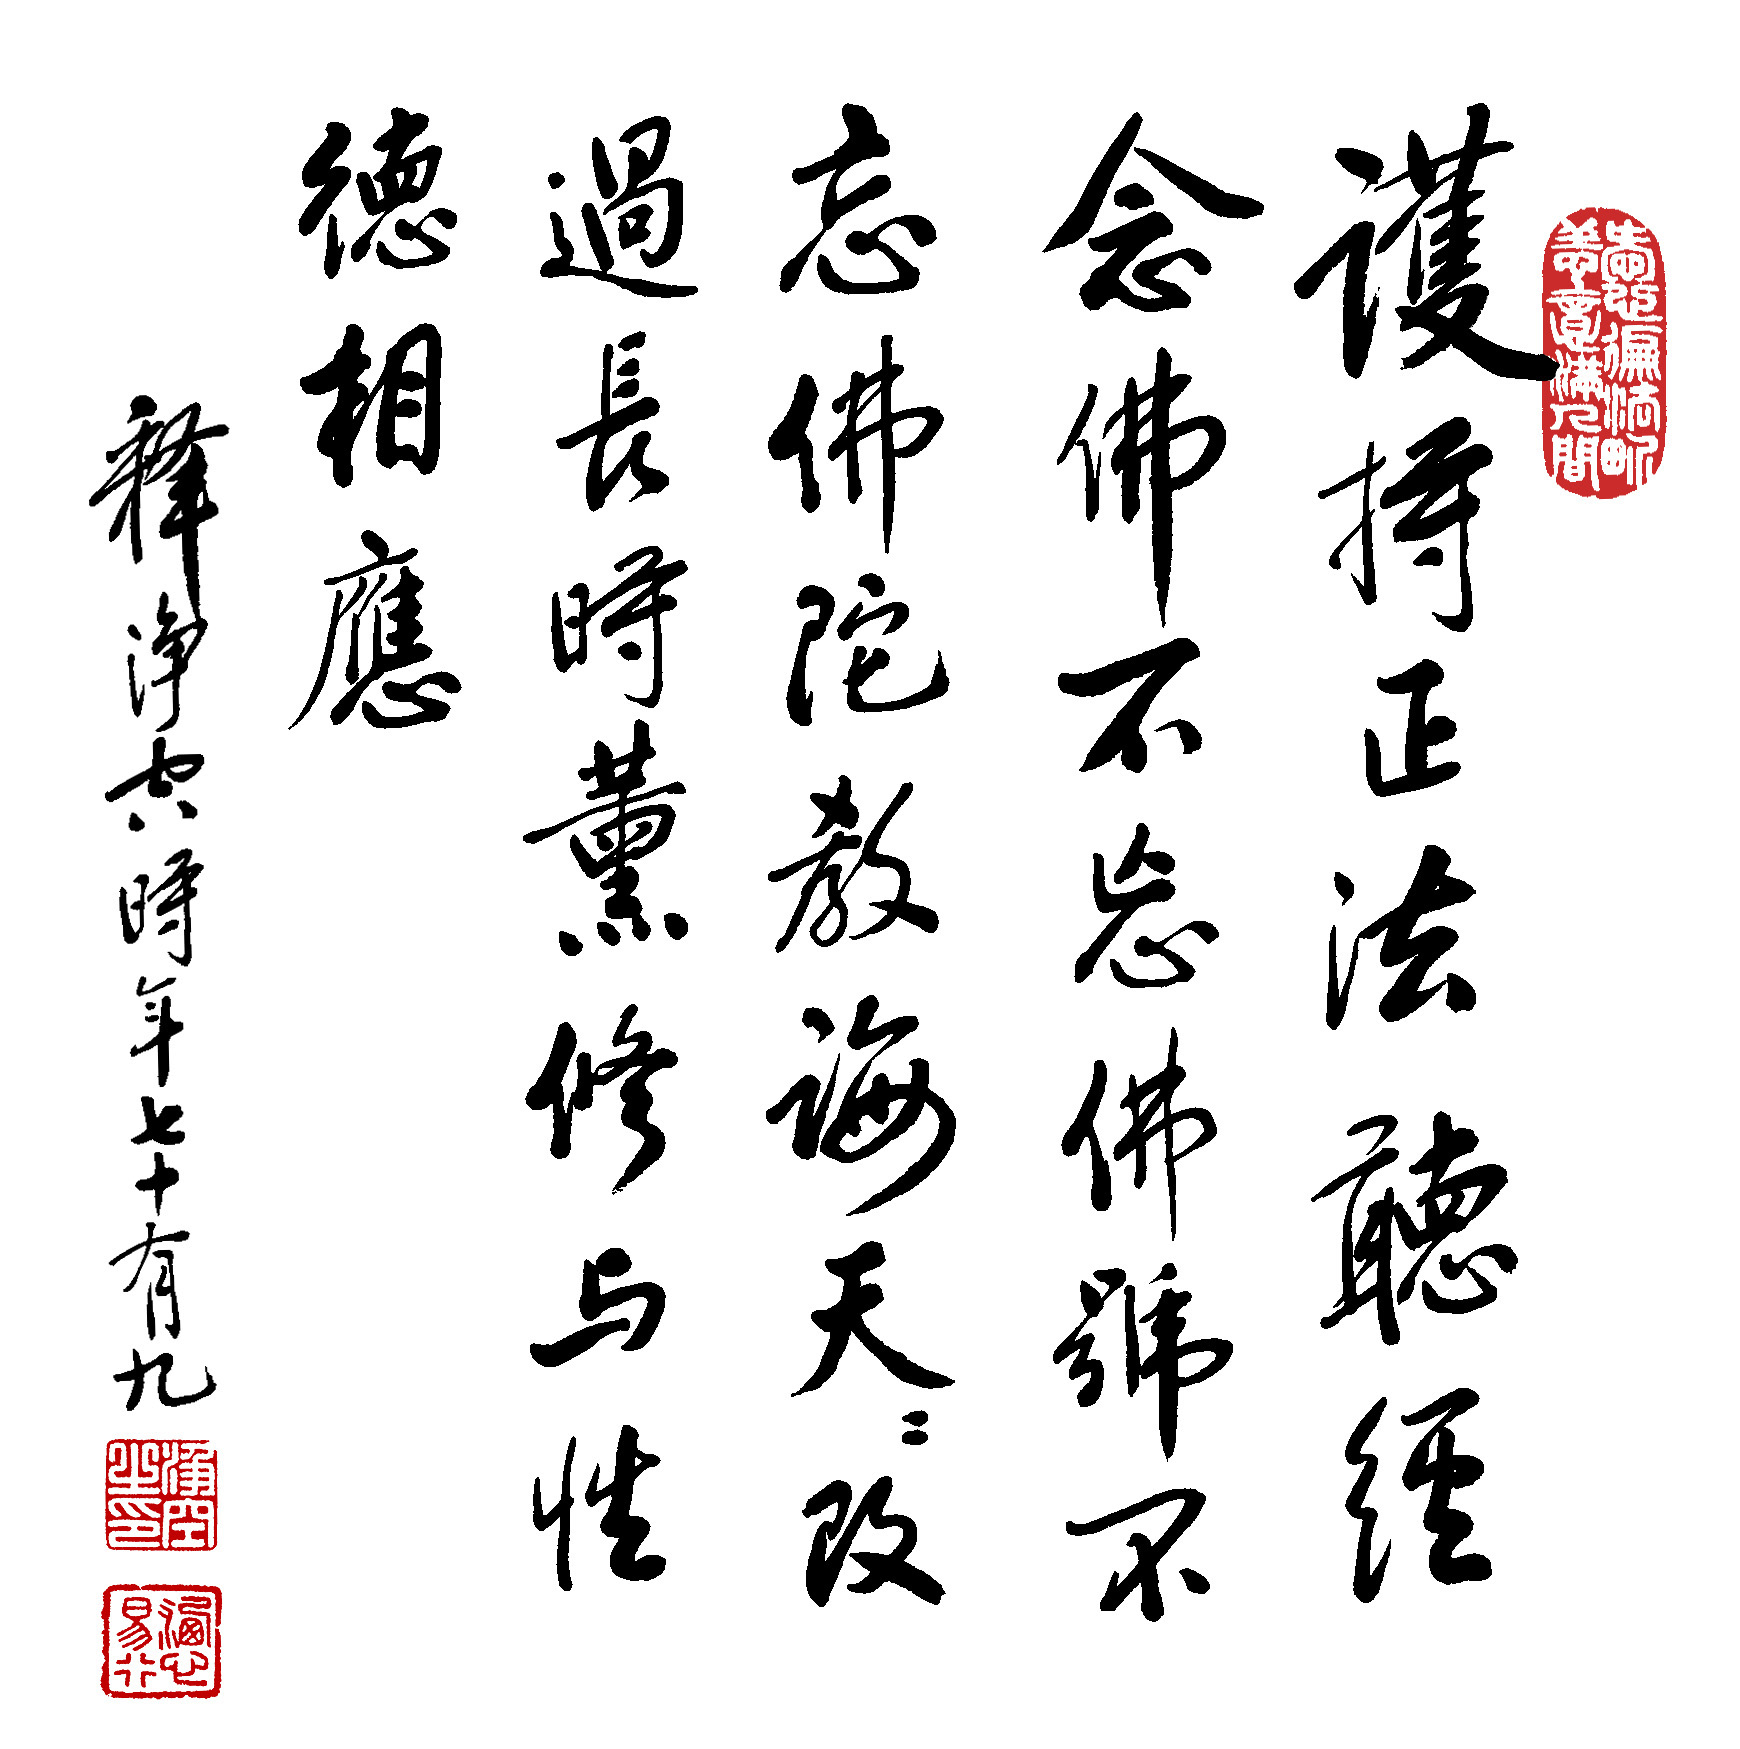 護持正法聽經
念佛不忘佛號不
忘佛陀教誨天〻改
過長時薰修与性
德相應
釋淨空時年七十有九
淨空之印